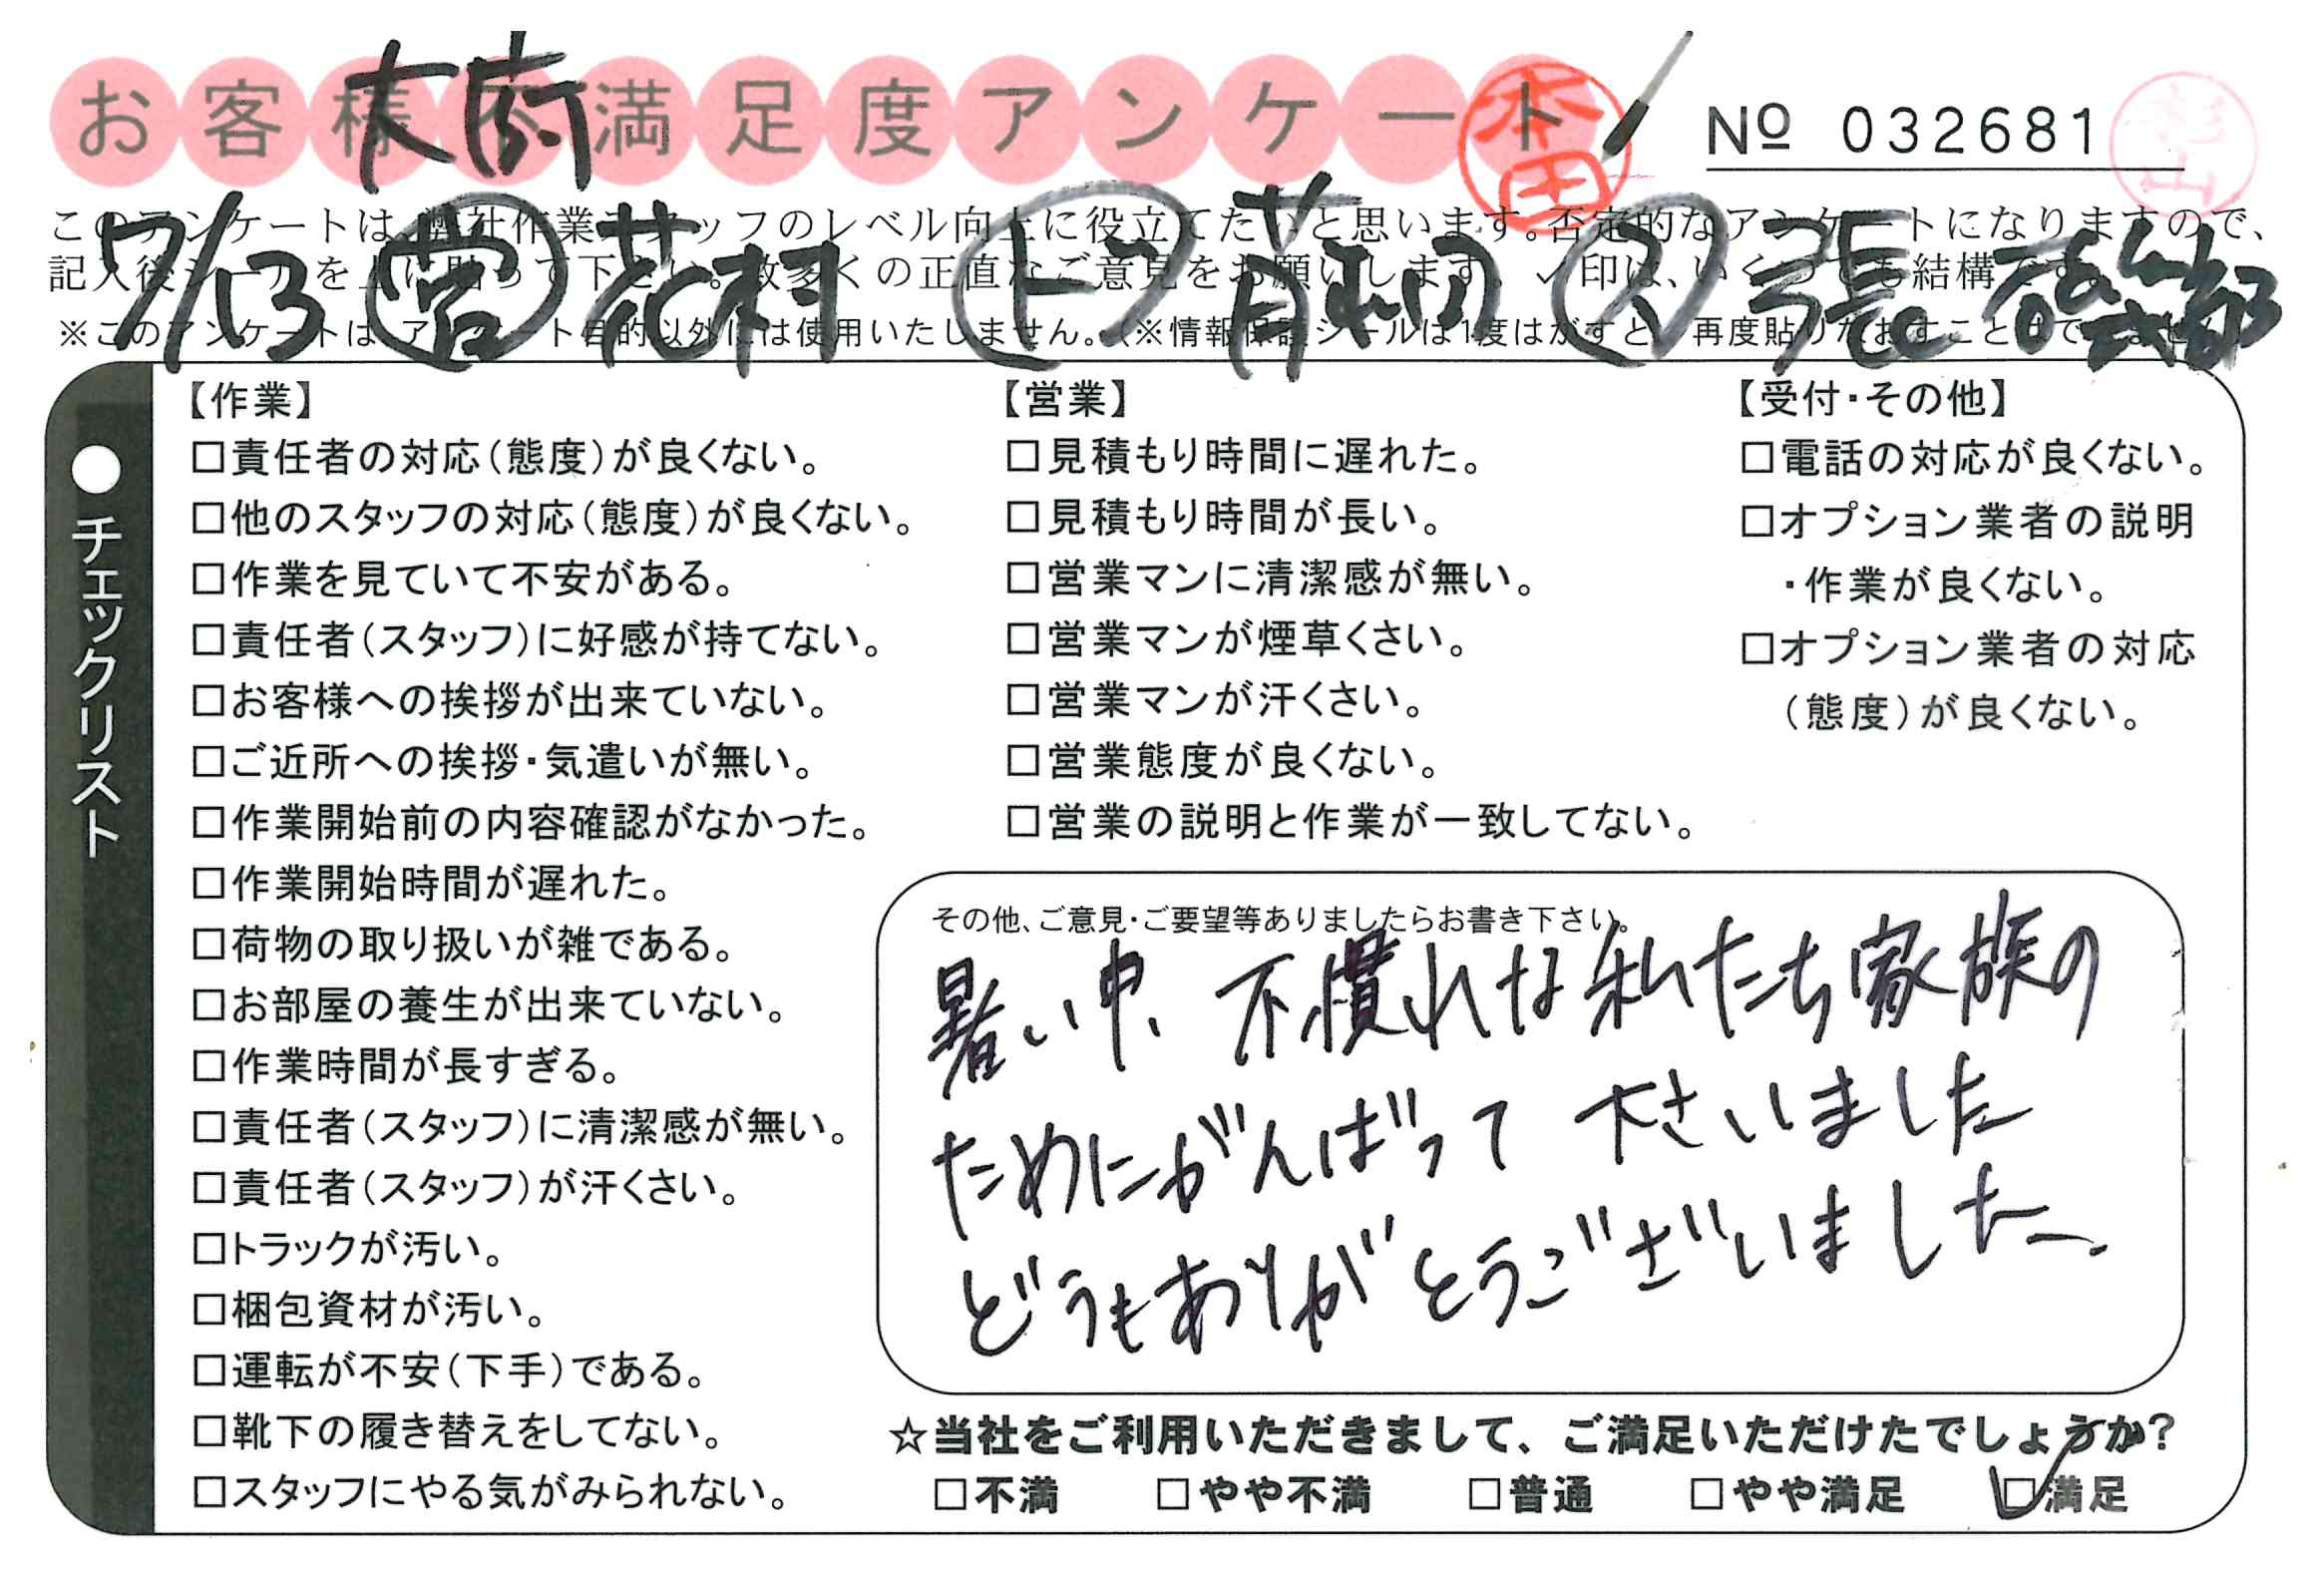 お客様不満足度アンケート
大府
本田
No 032681
杉山
このアンケートは、弊社作業スタッフのレベル向上に役立てたいと思います。否定的なアンケートになりますので、
記入後シールを上に貼って下さい。数多くの正直なご意見をお願いします。✓印は、いくつでも結構です。
※このアンケートは、アンケート目的以外には使用いたしません。(※情報保護シールは1度はがすと、再度貼りなおすことはできません)
7/13 営 花村 ト 青和田 ス 張
●チェックリスト
【作業】
□責任者の対応(態度)が良くない。
□他のスタッフの対応(態度)が良くない。
□作業を見ていて不安がある。
□責任者(スタッフ)に好感が持てない。
□お客様への挨拶が出来ていない。
□ご近所への挨拶・気遣いが無い。
□作業開始前の内容確認がなかった。
□作業開始時間が遅れた。
□荷物の取り扱いが雑である。
□お部屋の養生が出来ていない。
□作業時間が長すぎる。
□責任者(スタッフ)に清潔感が無い。
□責任者(スタッフ)が汗くさい。
□トラックが汚い。
□梱包資材が汚い。
□運転が不安(下手)である。
□靴下の履き替えをしてない。
□スタッフにやる気がみられない。
【営業】
□見積もり時間に遅れた。
□見積もり時間が長い。
□営業マンに清潔感が無い。
□営業マンが煙草くさい。
□営業マンが汗くさい。
□営業態度が良くない。
□営業の説明と作業が一致してない。
【受付・その他】
□電話の対応が良くない。
□オプション業者の説明
・作業が良くない。
□オプション業者の対応
(態度)が良くない。
その他、ご意見・ご要望等ありましたらお書き下さい。
暑い中、不慣れな私たち家族の
ためにがんばって下さいました
どうもありがとうございました。
☆当社をご利用いただきまして、ご満足いただけたでしょうか?
□不満 □やや不満 □普通 □やや満足 ☑満足